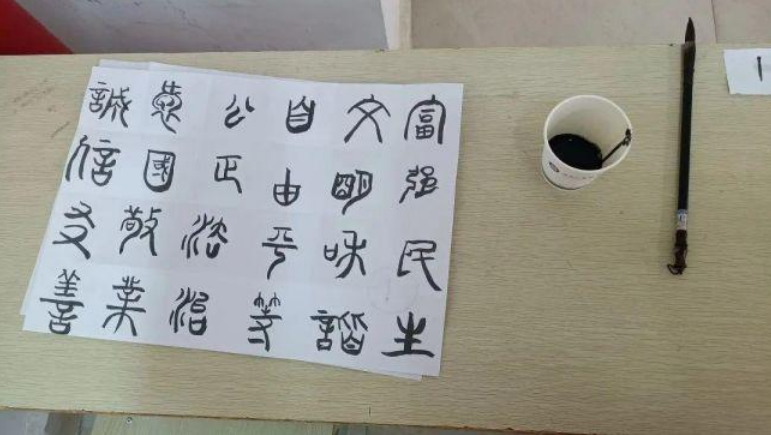 富强民主
文明和諧
自由平等
公正法治
愛國敬業
誠信友善